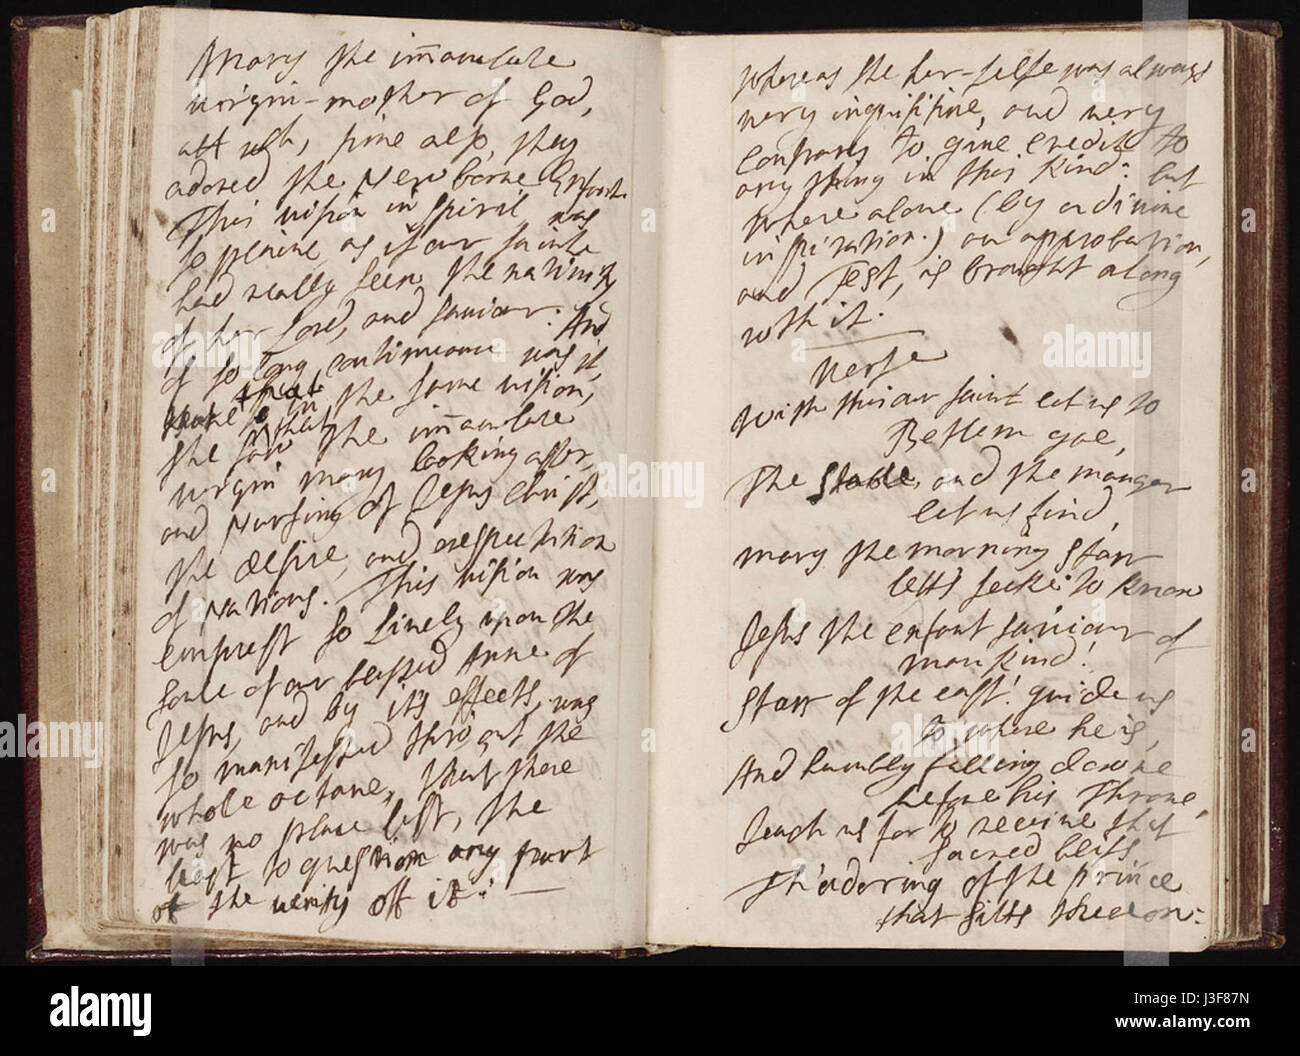 Mary the im̄aculate
virgin-mother of God,
att wch, time also, they
adored the New borne Enfant.
This vision in spirit, was
so plaine, as if our sainte
had really seen the nativity
of her Lord, and saviour: And
of so long continuance was it,
that in the same vision,
she saw the im̄aculate
virgin mary looking after,
and Nursing of Jesus Christ,
the desire, and expectation
of Nations. This vision was
imprest so Lively upon the
soule of our blessed Anne of
Jesus, and by it's effects, was
so manifested thro out the
whole octave, that there
was no place left, the
least to question any part
of the verity off it:
whereas she her-selfe was always
very inquisitive, and very
contrary to give credit to
any thing in this kind: but
where alone (by a divine
inspiration.) an approbation,
and Test, is brought along
with it.
Verse
With this our saint let us to
Betlem goe,
The Stable, and the manger
let us find,
mary the morning Starr
letts seeke to know
Jesus the enfant saviour of
mankind!
Starr of the east! guide us
to where he is,
And humbly falling downe
before his Throne,
Teach us for to receive that
sacred bliss
Th'adoring of the prince
that sitts theron:
alamy
J3F87N